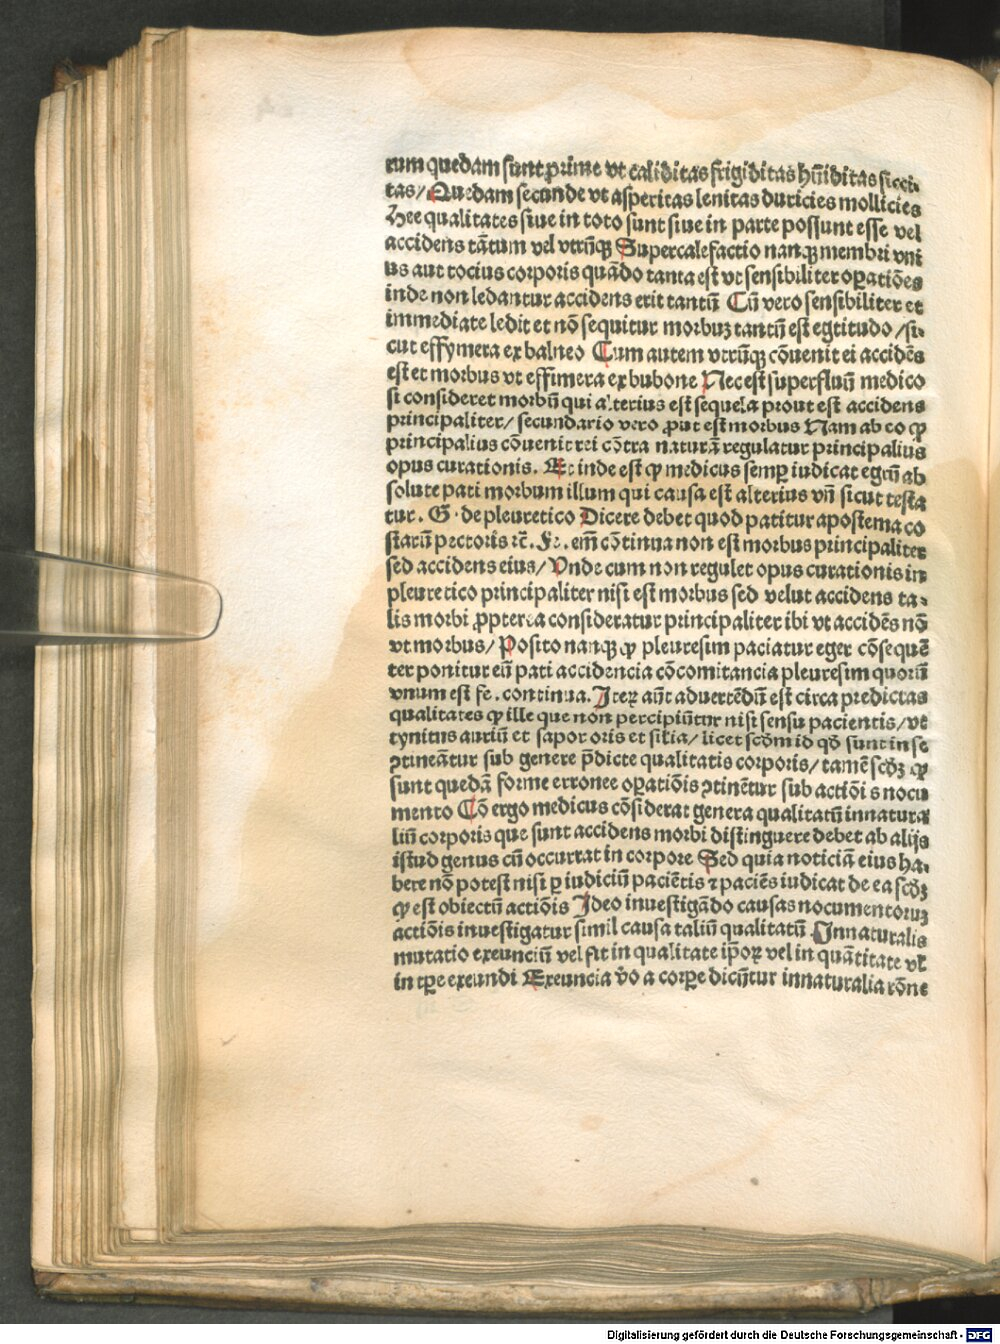 rum quedam sunt prime vt caliditas frigiditas hūiditas sicci-
tas/ Quedam secunde vt asperitas lenitas duricies mollicies
Hee qualitates siue in toto sunt siue in parte possunt esse vel
accidens tātum vel vtrūqꝫ Supercalefactio nanqꝫ membri vni
us aut tocius corporis quādo tanta est vt sensibiliter oꝑatiōes
inde non ledantur accidens erit tantū Cū vero sensibiliter et
immediate ledit et nō sequitur morbuꝫ tantū est egtitudo /si-
cut effymera ex balneo Cum autem vtrūqꝫ cōuenit ei accidēs
est et morbus vt effimera ex bubone Nec est superfluū medico
si consideret morbū qui alterius est sequela prout est accidens
principaliter/ secundario vero ꝓut est morbus Nam ab eo ꝙ
principalius cōuenit rei cōtra naturā regulatur principalius
opus curationis. Et inde est ꝙ medicus semꝑ iudicat egrū ab
solute pati morbum illum qui causa est alterius vn̄ sicut testa
tur. G. de pleuretico Dicere debet quod patitur apostema co
starū pectoris ⁊c̄. Fe. em̄ cōtinua non est morbus principaliter
sed accidens eius/ Vnde cum non regulet opus curationis in
pleuretico principaliter nisi est morbus sed velut accidens ta-
lis morbi ꝓpterea consideratur principaliter ibi vt accidēs nō
vt morbus/ Posito nanqꝫ ꝙ pleuresim paciatur eger cōsequē
ter ponitur eū pati accidencia cōcomitancia pleuresim quorū
vnum est fe. continua. Iteꝝ aūt aduertēdū est circa predictas
qualitates ꝙ ille que non percipiūtur nisi sensu pacientis/ vt
tynitus auriū et sapor oris et silia/ licet scd̄m id qd̄ sunt in se
ꝯtineātur sub genere p̄dicte qualitatis corporis/ tamē scd̄ꝫ ꝙ
sunt quedā forme erronee oꝑatiōis ꝯtinētur sub actiōis nocu
mento Cō ergo medicus cōsiderat genera qualitatū innatura
liū corporis que sunt accidens morbi distinguere debet ab alijs
istud genus cū occurrat in corpore Sed quia noticiā eius ha-
bere nō potest nisi ꝑ iudiciū paciētis ⁊ paciēs iudicat de ea scd̄ꝫ
ꝙ est obiectū actiōis Ideo inuestigādo causas nocumentoruꝫ
actiōis inuestigatur simil causa taliū qualitatū Innaturalis
mutatio exeunciū vel fit in qualitate ip̄oꝝ vel in quātitate vl̄
in tꝑe exeundi Exeuncia v̄o a corꝑe dicūtur innaturalia rōne
Digitalisierung gefördert durch die Deutsche Forschungsgemeinschaft - DFG